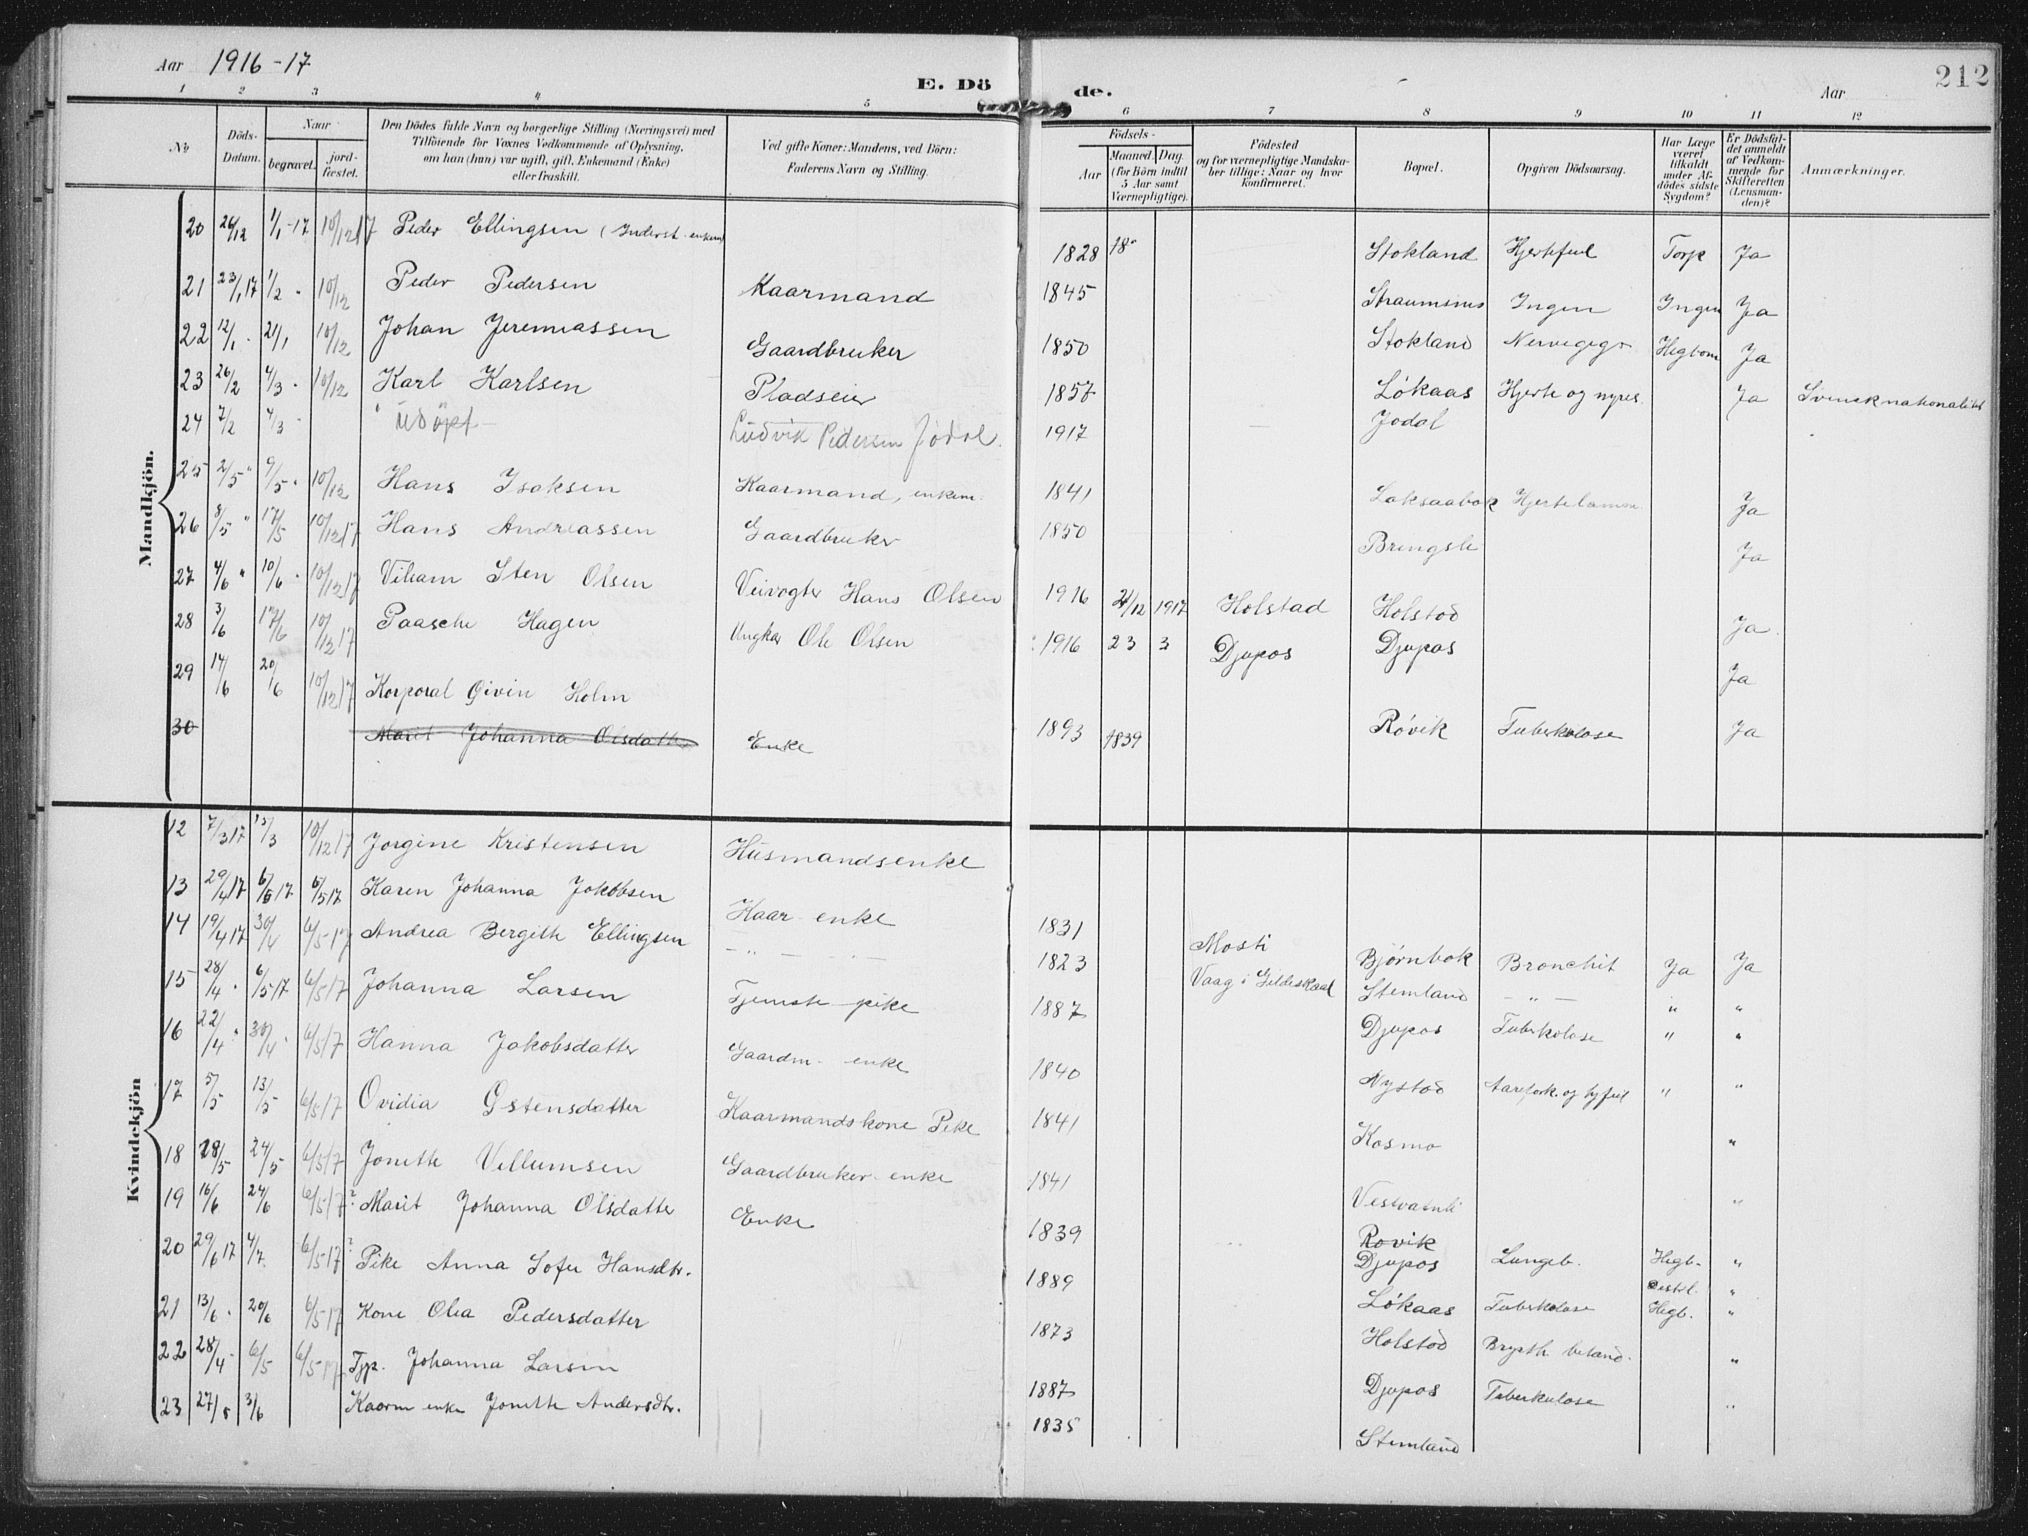 Aar 1916-17
E. Döde.
Aar
212
1 2 3 4 5 6 7 8 9 10 11 12
No
Döds-Datum.
Naar
begravet.
jord-fæstet.
Den Dödes fulde Navn og borgerlige Stilling (Næringsvei) med
Tilföiende for Voxnes Vedkommende af Oplysning,
om han (hun) var ugift, gift, Enkemand (Enke)
eller fraskilt.
Ved gifte Koner: Mandens, ved Börn:
Faderens Navn og Stilling.
Födsels-
Aar
Maaned. Dag.
(for Börn indtil
5 Aar samt
Værnepligtige).
Födested
og for værnepligtige Mandska-
ber tillige: Naar og hvor
konfirmeret.
Bopæl.
Opgiven Dödsaarsag.
Har Læge
været
tilkaldt
under Af-
dödes sidste
Sygdom?
Er Dödsfal-
det anmeldt
af Vedkom-
mende for
Skifteretten
(Lensman-
den)?
Anmærkninger.
Mandkjön.
20 26/12 1/1-17 10/12 17 Peder Ellingsen (Inderst enkem 1828 18 Stokland Hjertefeil Torp Ja
21 23/1 17 1/2 " 10/12 Peder Pedersen Kaarmand 1845 Straumsnes Ingen Ingen Ja
22 12/1 . 21/1 10/12 Johan Jeremiassen Gaardbruker 1850 Stokland Hegbom Ja
23 26/2 4/3 . 10/12 Karl Karlsen Pladseier 1857 Løkaas Hjerte og nyres. Ja Svensk nationalitet
24 7/2 4/3 - udöpt Ludvik Pedersen Jødal. 1917 Jodal
25 2/5 " 9/5 . 10/12 Hans Isaksen Kaarmand, enkem. 1841 Laksaabak Hjertelamm. Ja
26 8/5 " 17/5 10/12 17 Hans Andreassen Gaardbruker 1850 Bringsli Ja
27 4/6 " 10/6 . 10/12 17 Viliam Sten Olsen Veivogter Hans Olsen 1916 21/12 1917 Holstad Holstad Ja
28 3/6 17/6 10/12 17 Paasche Hagen Ungkar Ole Olsen 1916 23 3 Djupos Djupos Ja
29 14/6 20/6 10/12 17 Korporal Eivin Holm 1893 Røvik Tuberkulose Ja
30 Marit Johanna Olsdatter Enke 1839
Kvindekjön
12 7/3 17 15/3 10/12 17 Jorgine Kristensen Husmandsenke
13 29/4 17 6/5 17 6/5 17 Karen Johanna Jakobsen Kaar enke 1831 Mosti Bjørnbak Bronchit Ja Ja
14 19/4 17 30/4 6/5-17 Andrea Bergith Ellingsen - " - - " - 1823 Vaag i Gildeskaal Stemland - " - " "
15 28/4 . 6/5 17 6/5 17 Johanna Larsen Tjeneste pike 1887 Djupos Tuberkolose " "
16 22/4 " 30/4 . 6/5 17 Hanna Jakobsdatter Gaardm. enke 1840 Nystad Aarefork. og hjfeil " "
17 5/5 13/5 6/5 17 Ovidia Estensdatter Kaarmandskone Pike 1841 Kosmo "
18 28/5 24/5 6/5 17 Joneth Villumsen Gaardbruker enke 1841 Vestvatnli "
19 16/6 24/6 6/5 17? Marit Johanna Olsdatter Enke 1839 Rovik
20 29/6 17 4/7. 6/5-17? Pike Anna Sofie Hansdtr. 1889 Djupos Lungeb. Hegb. "
21 13/6 . 20/6 6/5-17 Kone Olea Pedersdatter 1873 Løkaas Tuberkolose Hegb. "
22 28/4 - 6/5 6/5-17 Tjp. Johanna Larsen 1887 Holstad "
23 27/5 3/6 Kaarm enke Joneth Andersdtr. 1835 Djupos Tuberkulose "
Stemland